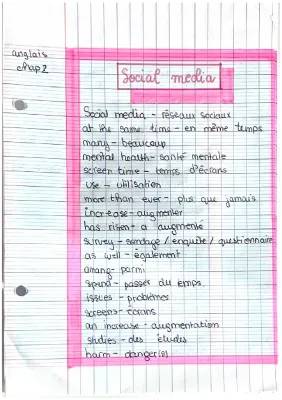 anglais
chap 2
Social media
Social media - réseaux sociaux
at the same time - en même temps
many - beaucoup
mental health - santé mentale
screen time - temps d'écrans
use - utilisation
more than ever - plus que jamais
increase - augmenter
has risen - a augmenté
survey - sondage / enquête / questionnaire
as well - également
among - parmi
spend - passer du emps
issues - problèmes
screens - écrans
an increase - augmentation
studies - des études
harm - danger(e)